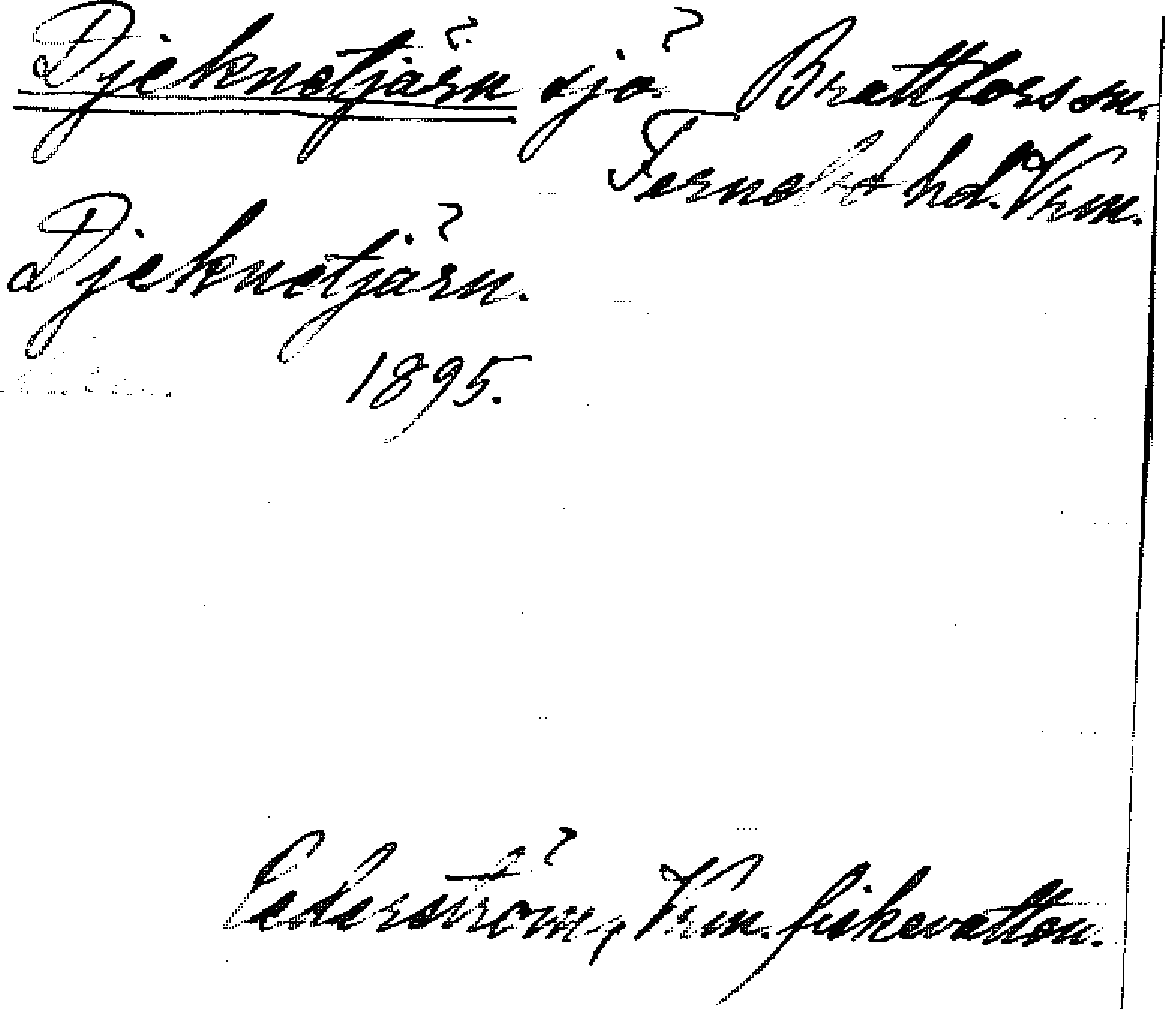 Djeknetjärn sjö Brattfors sn.
Fernebo hd. Vrm.
Djeknetjärn.
1895.
Cederström, Vrm. fiskevatten.